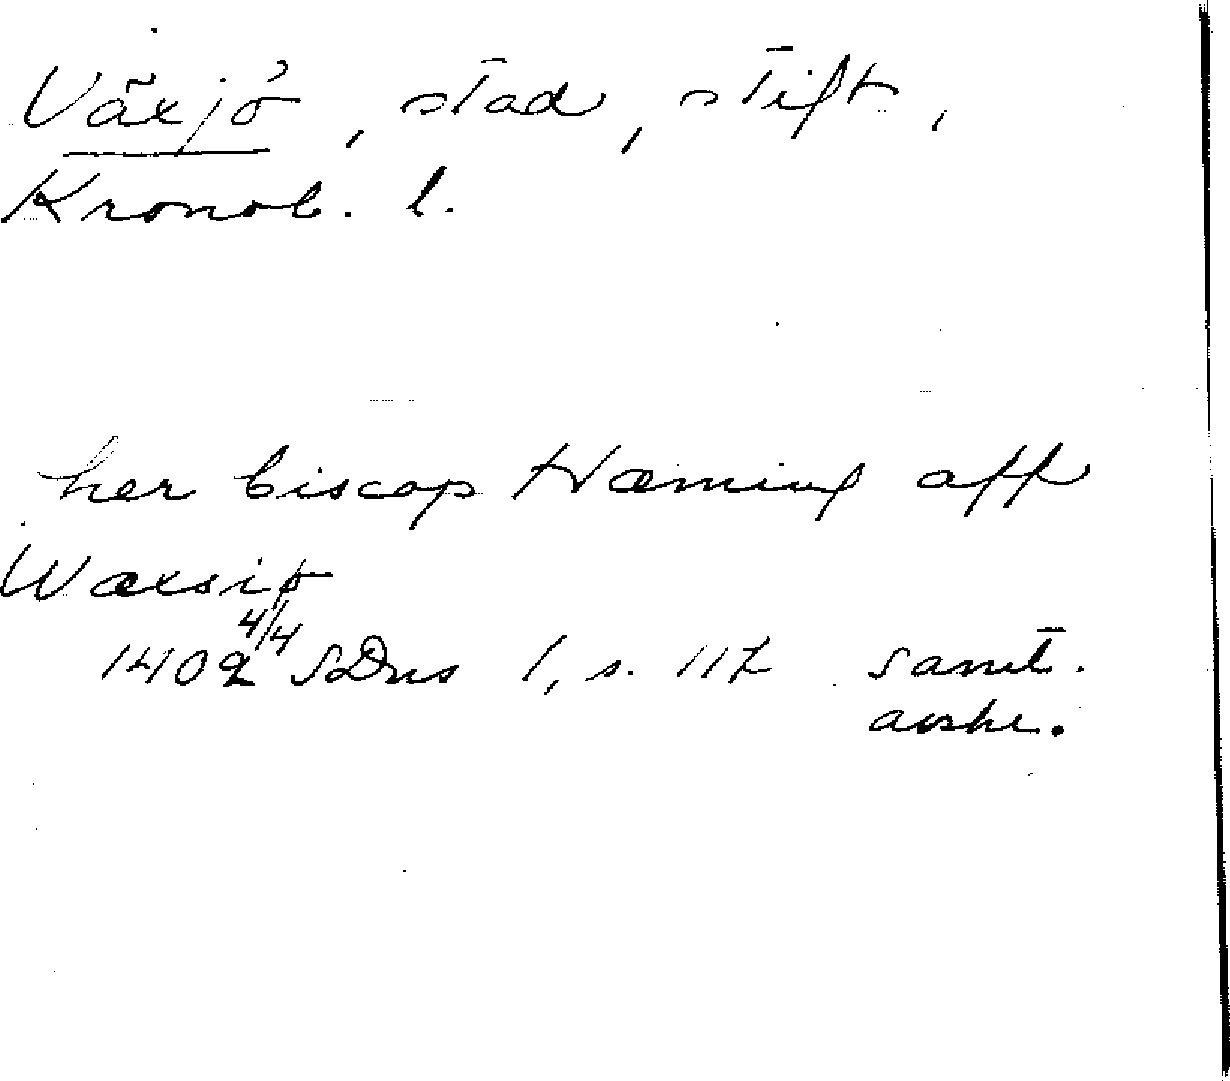 Växjö, stad, stift,
Kronob. l.
her biscop Hæming aff
Wæxsiø
1402 4/4 SDns 1, s. 117 samt.
avskr.